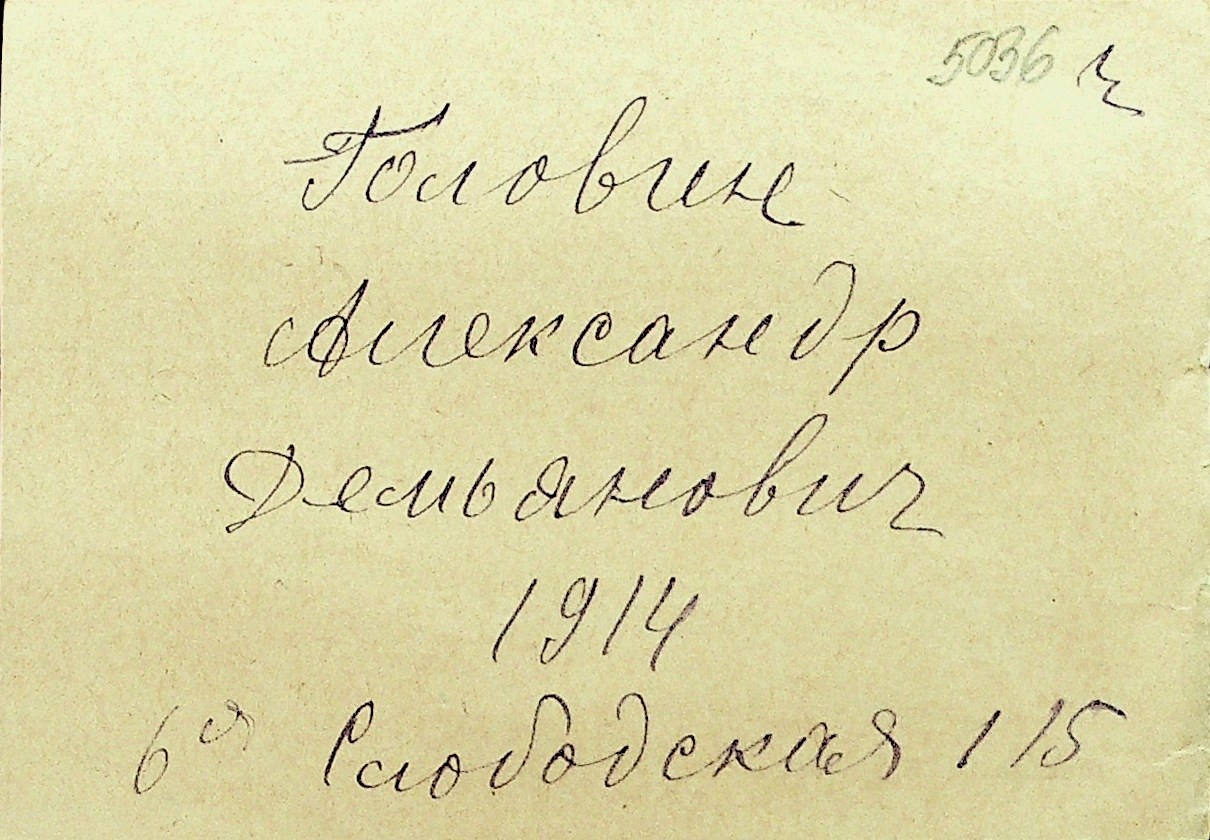 5036
Головин
Александр
Демьянович
1914
6ая Слободская 115